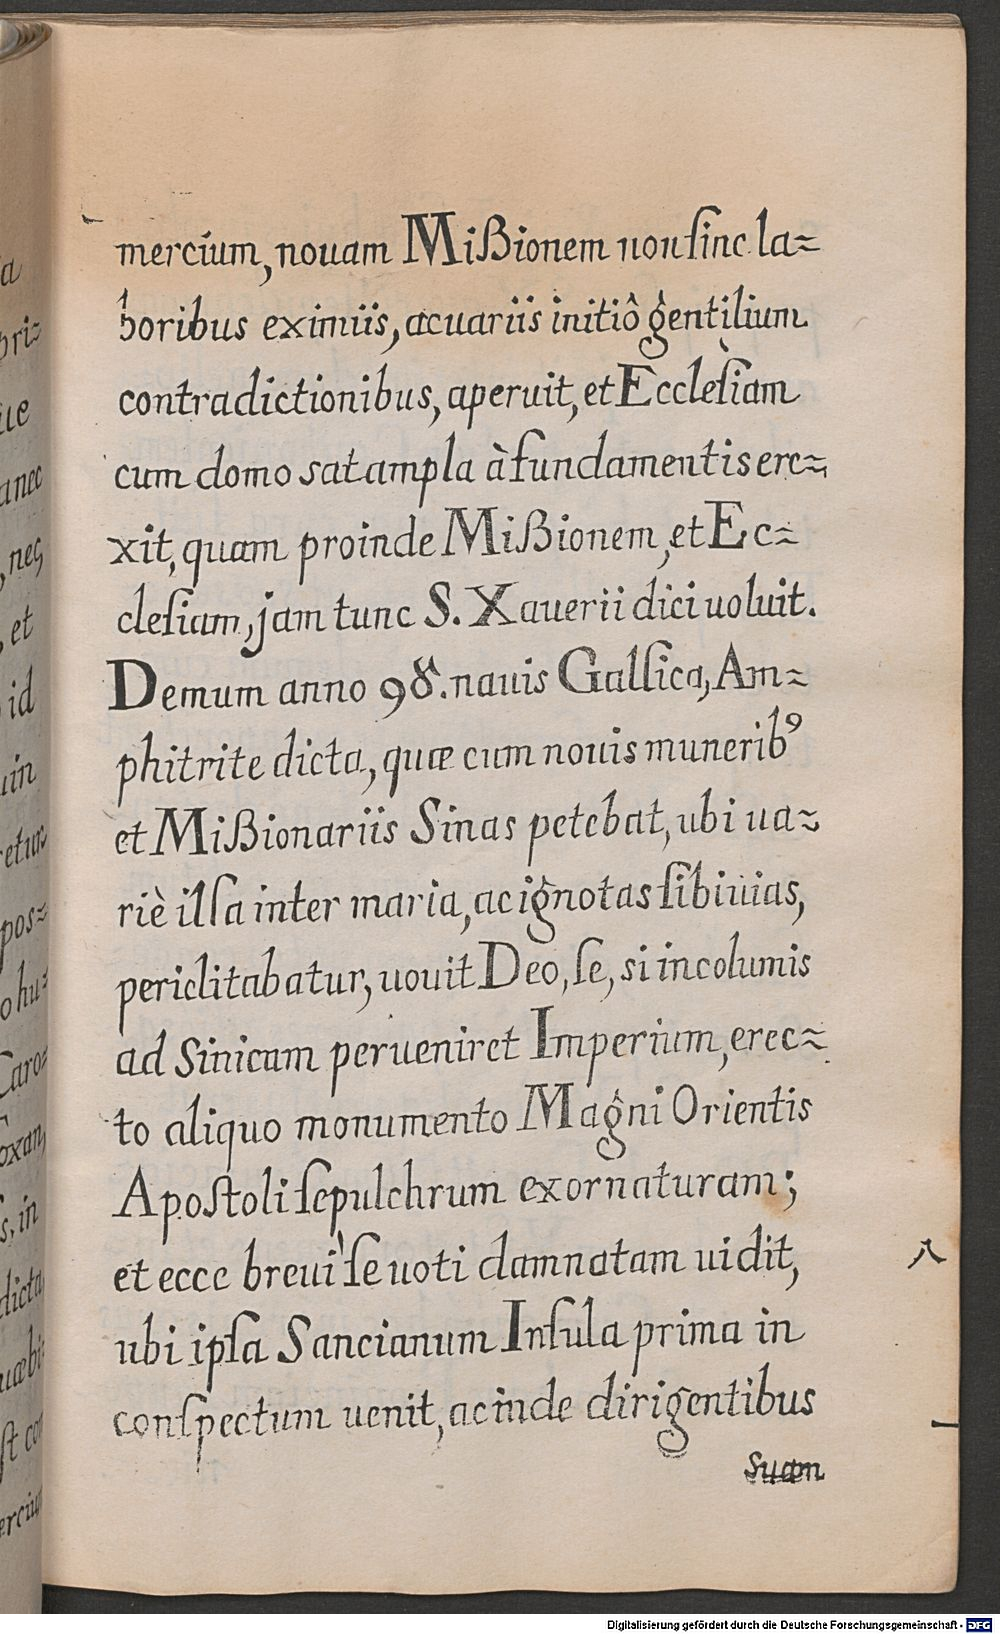 mercium, nouam Mißionem non ſine la⹀
boribus eximiis, ac uariis initiô gentilium
contradictionibus, aperuit, et Eccleſiam
cum domo sat ampla à fundamentis ere⹀
xit, quam proinde Mißionem, et Ec⹀
cleſiam, jam tunc S. Xauerii dici uoluit.
Demum anno 98. nauis Gallica, Am⹀
phitrite dicta, quæ cum nouis munerib⁹
et Mißionariis Sinas petebat, ubi ua⹀
riè illa inter maria, ac ignotas ſibi uias,
periclitabatur, uouit Deo, ſe, si incolumis
ad Sinicum perueniret Imperium, erec⹀
to aliquo monumento Magni Orientis
Apoſtoli ſepulchrum exornaturam;
et ecce breui ſe uoti damnatam uidit,
ubi ipſa Sancianum Inſula prima in
conſpectum uenit, ac inde dirigentibus
suam
八
Digitalisierung gefördert durch die Deutsche Forschungsgemeinschaft - DFG